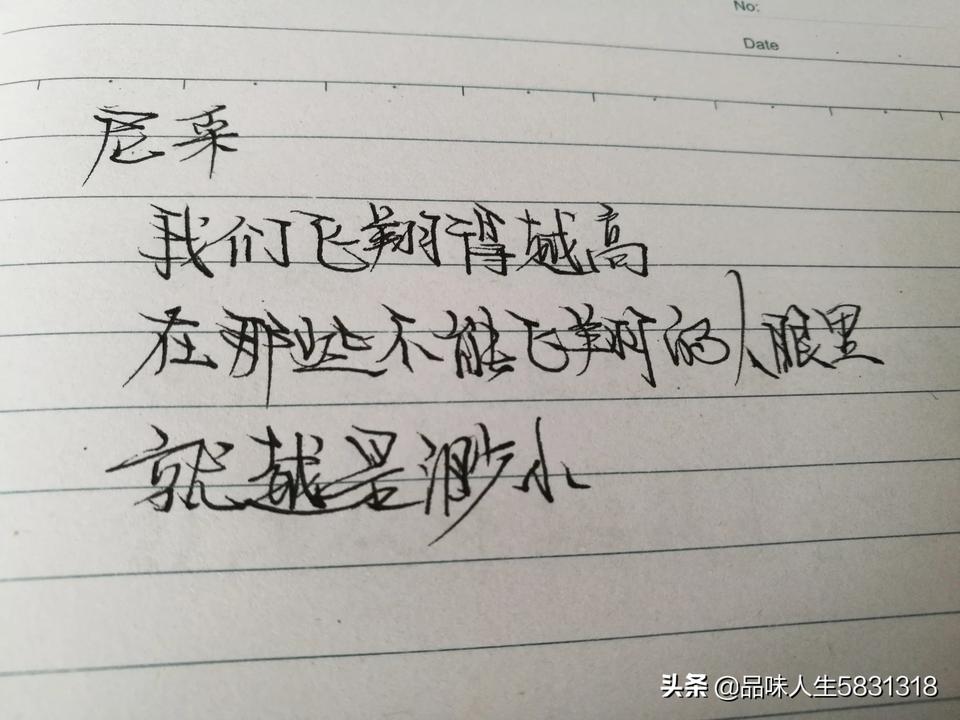 No:
Date
尼采
我们飞翔得越高
在那些不能飞翔的人眼里
就越是渺小
头条 @品味人生5831318